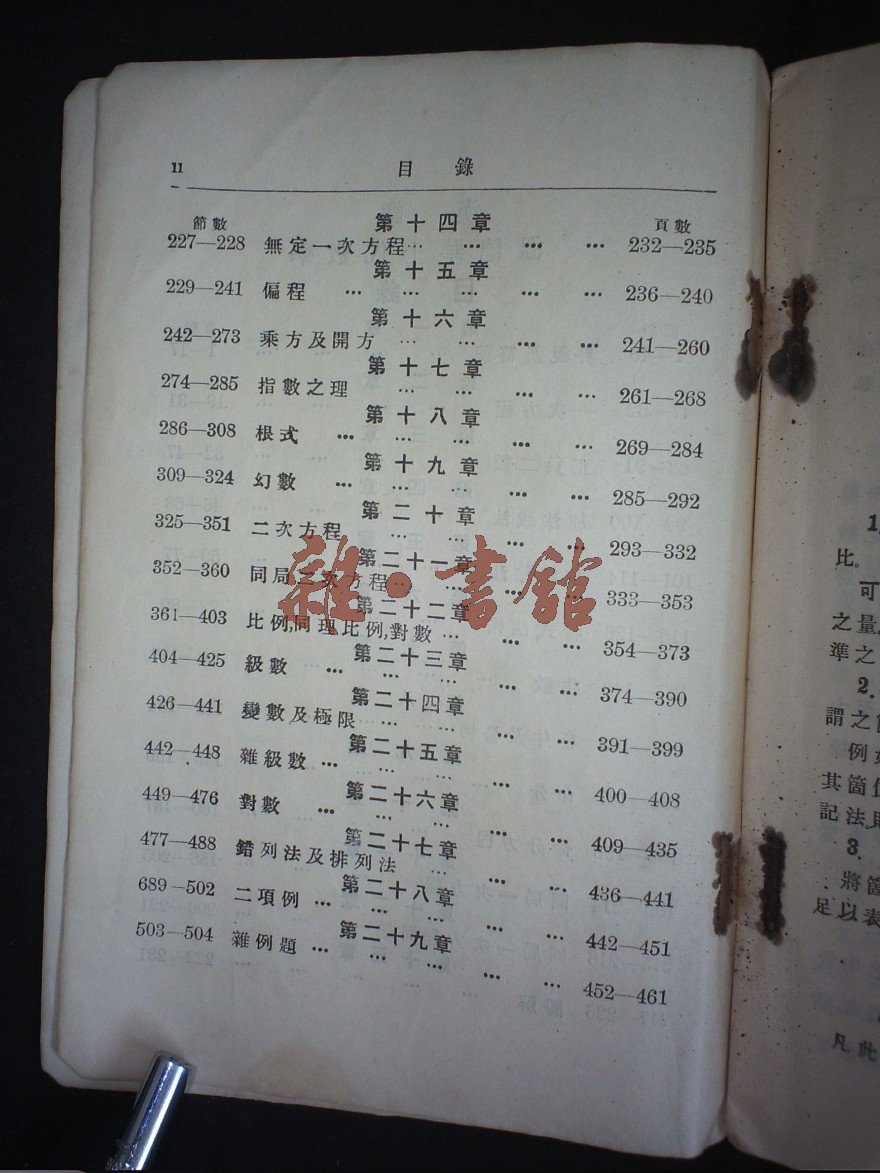 11 目錄
節數 第十四章 頁數
227—228 無定一次方程… … … … 232—235
第十五章
229—241 偏程 … … … … … 236—240
第十六章
242—273 乘方及開方 … … … … 241—260
第十七章
274—285 指數之理 … … … … 261—268
第十八章
286—308 根式 … … … … … 269—284
第十九章
309—324 幻數 … … … … … 285—292
第二十章
325—351 二次方程 … … … … 293—332
第二十一章
352—360 同局二次方程… … … … 333—353
第二十二章
361—403 比例,同理比例,對數 … … … 354—373
第二十三章
404—425 級數 … … … … … 374—390
第二十四章
426—441 變數及極限 … … … … 391—399
第二十五章
442—448 雜級數 … … … … 400—408
第二十六章
449—476 對數 … … … … … 409—435
第二十七章
477—488 錯列法及排列法 … … … 436—441
第二十八章
689—502 二項例 … … … … … 442—451
第二十九章
503—504 雜例題 … … … … … 452—461
雜·書館
1.
比.
可
之量
準之
2.
謂之
例
其箇
記法
3.
將箇
足以表
凡此